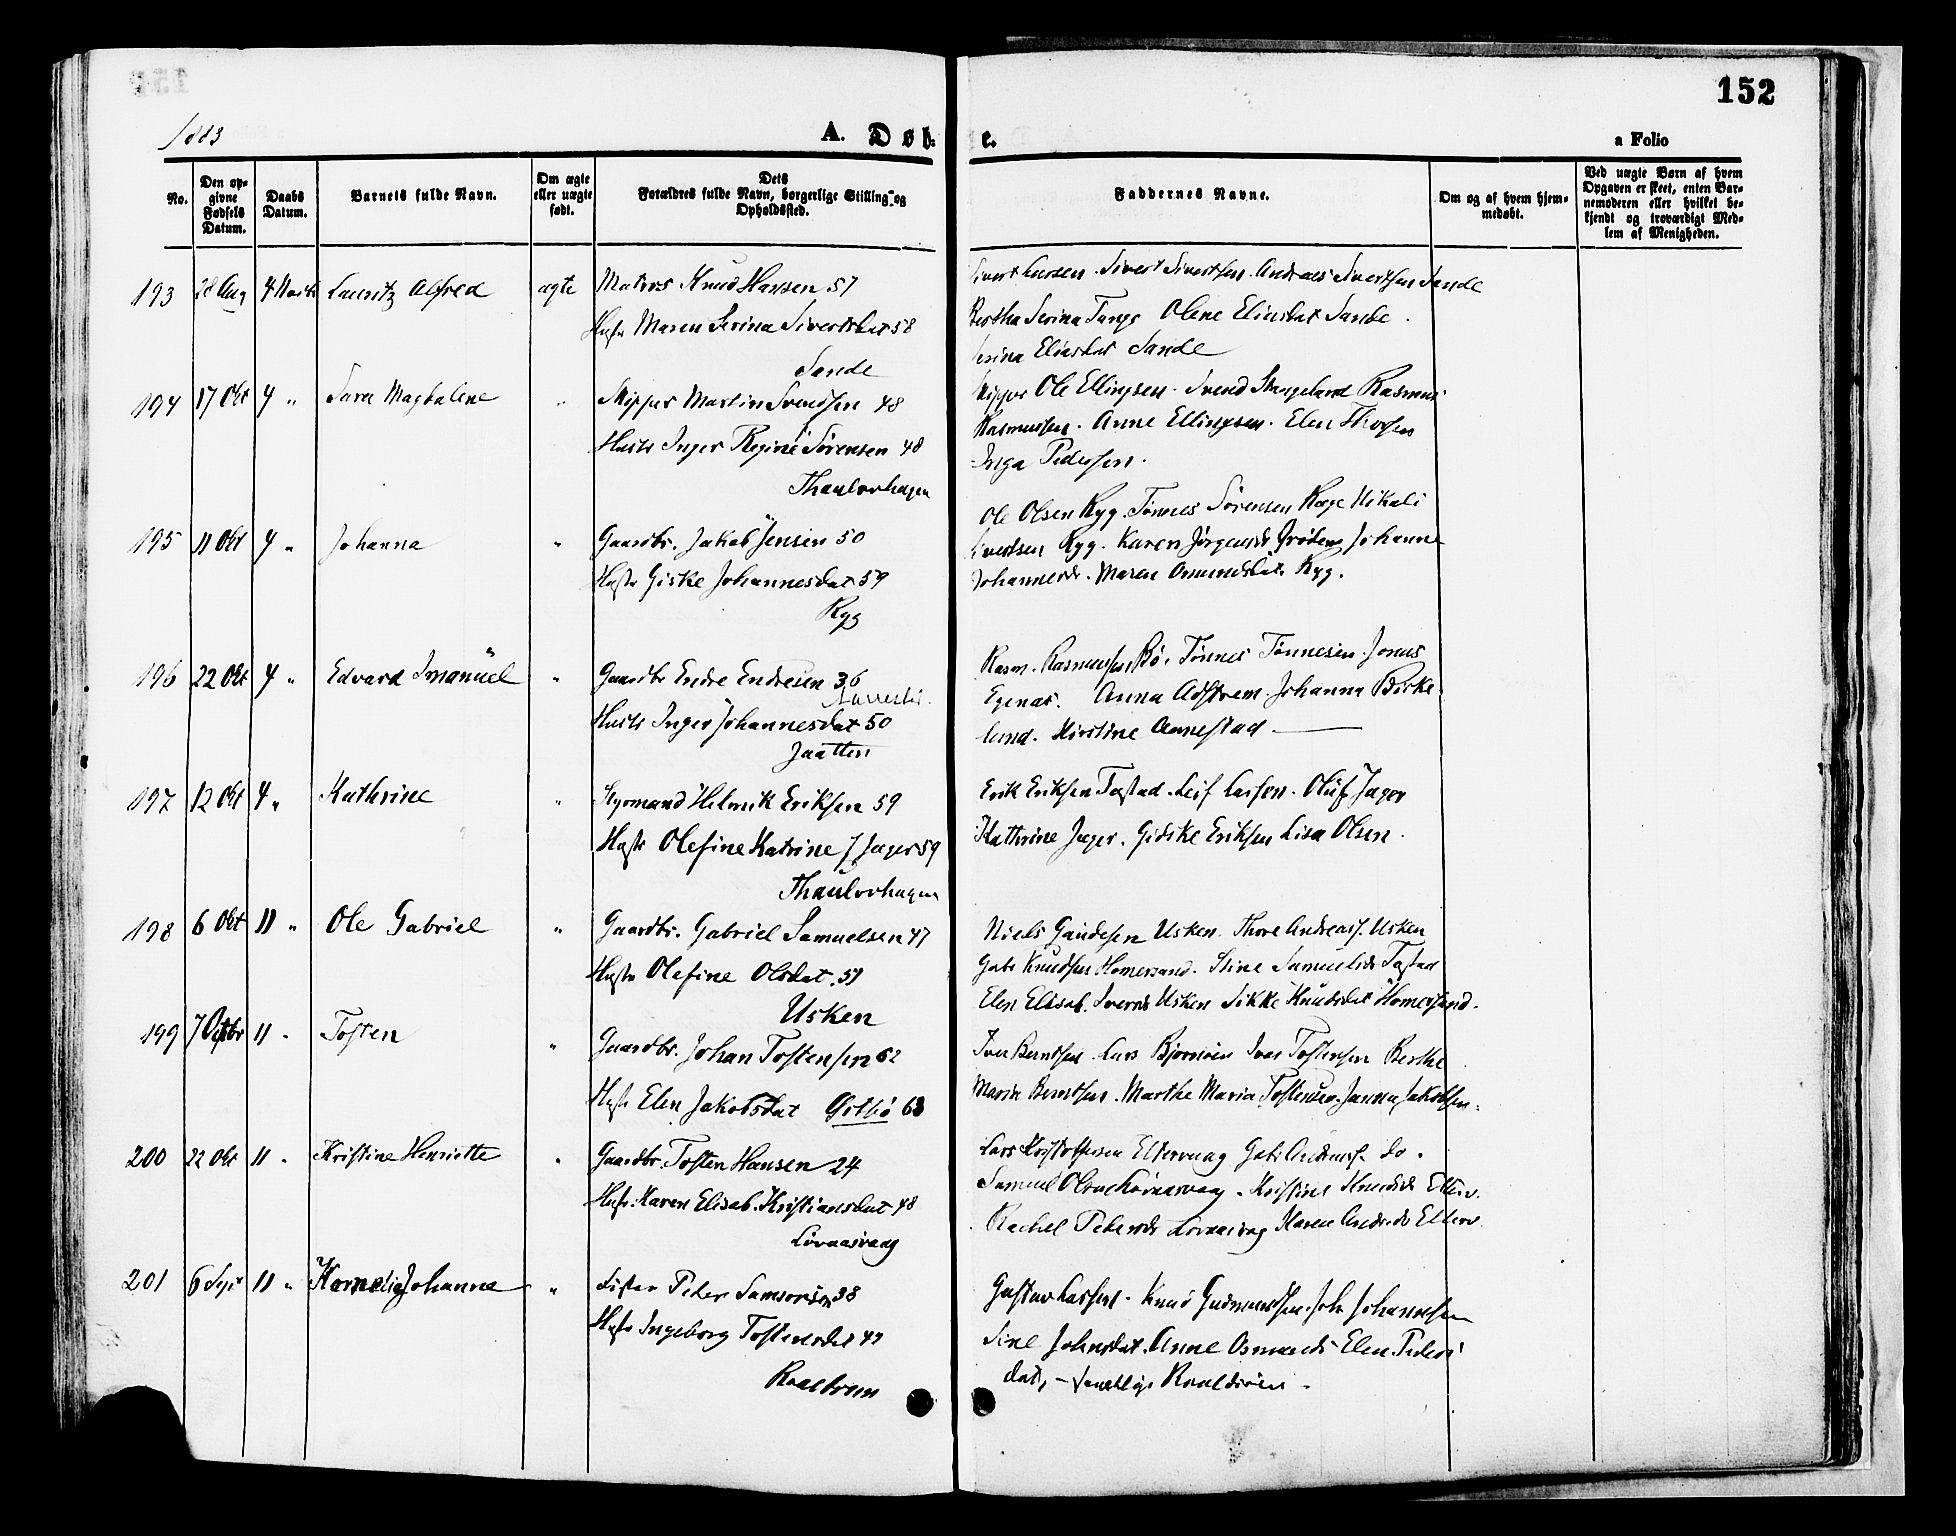 152
1883
A. Døbte.
a Folio
No.
Den opgivne Fødsels Datum.
Daabs Datum.
Barnets fulde Navn.
Om ægte eller uægte født.
Dets Forældres fulde Navn, borgerlige Stilling og Opholdssted.
Faddernes Navne.
Om og af hvem hjemmedøbt.
Ved uægte Børn af hvem Opgaven er skeet, enten Barnemoderen eller hvilket bekjendt og troværdigt Medlem af Menigheden.
193 28 Aug 4 Lauritz Alfred ægte Matros Knud Hansen 57
Maren Serina Sivertsdat 58
Sande
Sivert Larsen. Sivert Sivertsen. Andreas Sivertsen Sande
Bertha Serina Tange Olene Eliasdat Sande.
Serina Eliasdat Sande
194 17 Okt 4 " Sara Magdalene " Skipper Martin Svendsen 48
Hustr Inger Regine Sørensen 48
Thaulovhagen
Skipper Ole Ellingsen. Svend Skageland Rasmus
Rasmussen. Anne Ellingsen. Elen
Inga Pedersen.
195 11 Okt 4 " Johanna " Gaardbr. Jakob Jensen 50
Hustr Giske Johannesdat 59
Ryg
Ole Olsen Ryg. Tønnes Sørensen Nikoli
Sivertsen Ryg. Karen Johanne
Johannesd. Maren Osmundsdat. Ryg.
196 22 Okt 4 " Edvard Imanuel " Gaardbr Endre Endresen 36
Hustr Inger Johannesdat 50
Jaatten
Rasm. Rasmussen Bø. Tønnes Tønnesen. Jonas
Egenæs. Anna Johanna Birke-
lund. Kirstine Aunestad
197 12 Okt 4 " Kathrine " Styrmand Helmik Eriksen 59
Hustr Olefine Katrine J Jæger 59
Thaulovhagen
Erik Eriksen Tastad. Leif Larsen. Oluf Jæger
Kathrine Jæger. Gidske Eriksen Lisa Olsen.
198 6 Okt 11 " Ole Gabriel " Gaardbr. Gabriel Samuelsen 47
Hustr Olefine Olsdat. 57
Usken
Niels Gaudesen Usken. Thore Andreass. Usken
Gabr Knudsen Homersand. Stine Samuelsd Tastad
Elen Elisab. Usken Sikke Knudsdat Homersand.
199 7 11 " Tosten " Gaardbr. Johan Tostensen 62
Hustr Elen Jakobsdat 63
Iver Berntsen. Lars Ivar Tostensen Berthe
Maria Berntsen. Marthe Maria Tostensen. Janna Jakobsen.
200 22 Okt 11 " Kristine Henriette " Gaardbr. Tosten Hansen 24
Hustr. Karen Elisab. Kristiansdat 48
Lovaasvaag
Lars Kristoffersen Eltervaag Gabr do.
Samuel Olsen Lovaasvaag. Kristine Elterv.
Rachel Pedersd Lovaasvag Karen Elterv.
201 6 Sept 11 " Kornelie Johanne " Fisker Peder Samsonsen 38
Hustr Ingeborg Tostensdat 47
Gustav Larsen. Knud Gudmundsen. Joh. Johannesen
Sine Johnsdat. Anne Osmunds Elen Peders
dat, -